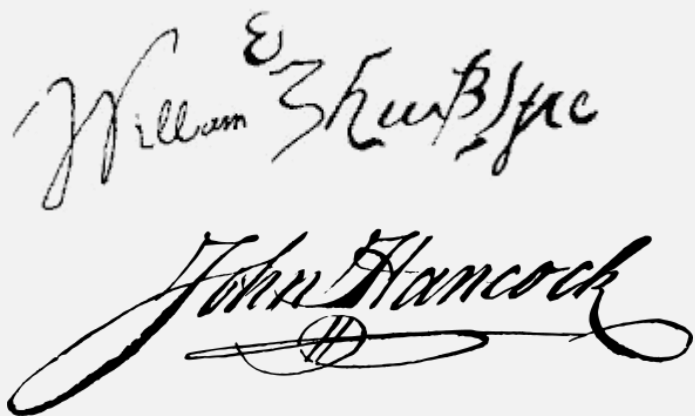 William Shakspere
John Hancock